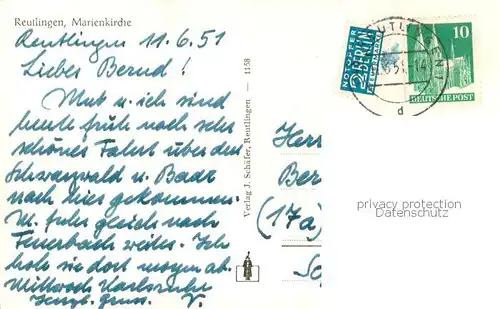 Reutlingen, Marienkirche
Reutlingen 11.6.51
Lieber Bernd!
Mut u. ich sind
heute früh nach sehr
schöner Fahrt über den
Schwarzwald u. Baar
nach hier gekommen.
M. fuhr gleich nach
Feuerbach weiter. Ich
hole sie dort morgen ab.
Mittwoch Karlsruhe
Herzl. Gruss. V.
Verlag J. Schäfer, Reutlingen — 1158
Herr
Ber
(17a)
NOTOPFER
2 BERLIN
STEUERMARKE
REUTLINGEN 1
d
10
DEUTSCHE POST
privacy protection
Datenschutz